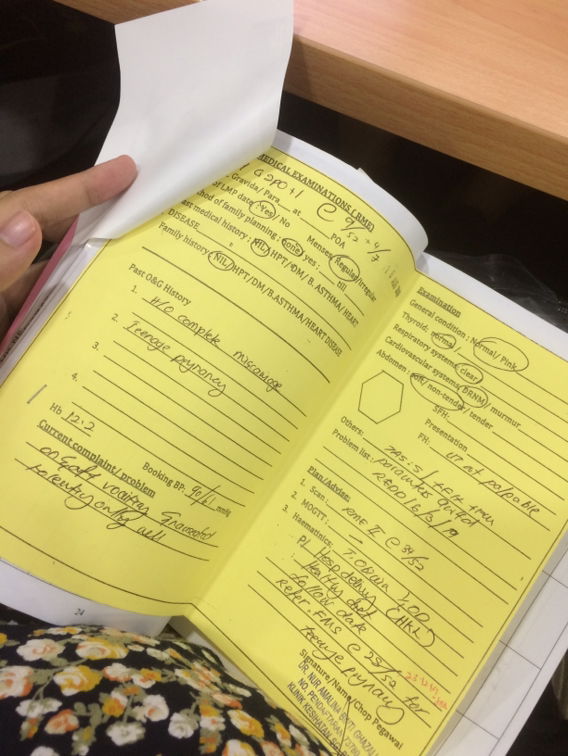 MEDICAL EXAMINATIONS (RME)
G2P0+1 @ 9/52 + 4/7
Gravida/ Para at POA
LMP date: Yes/ No Menses: Regular/Irregular
method of family planning: none/ yes: till
Past medical history: NIL/ HPT/ DM/ B. ASTHMA/ HEART
DISEASE
Family history: NIL/HPT/DM/B.ASTHMA/HEART DISEASE
Past O&G History
1. H/O complete miscarriage
2. Teenage pregnancy
3.
4.
Hb 12.2
Booking BP: 90/61 mmHg
Current complaint/ problem
vomiting
24
Examination
General condition: Normal/ Pink
Thyroid: normal/
Respiratory systems: clear/
Cardiovascular systems: DRNM/ murmur
Abdomen: soft/ non-tender/ tender
SFH:
Presentation
FH: UT not palpable
Others:
Problem list:
REDD 16/3/19
Plan/Advise:
1. Scan: RME II @ 34/52
2. MOGTT:
3. Haematinics: T. Obimin
Hosp delivery (HKL)
healthy diet
follow date
Refer FMS @ 25/52 for
teenage pregnancy
Signature/Name/Chop Pegawai
DR. NUR AMALINA BINTI GHAZALI
NO. PENDAFTARAN
KLINIK KESIHATAN